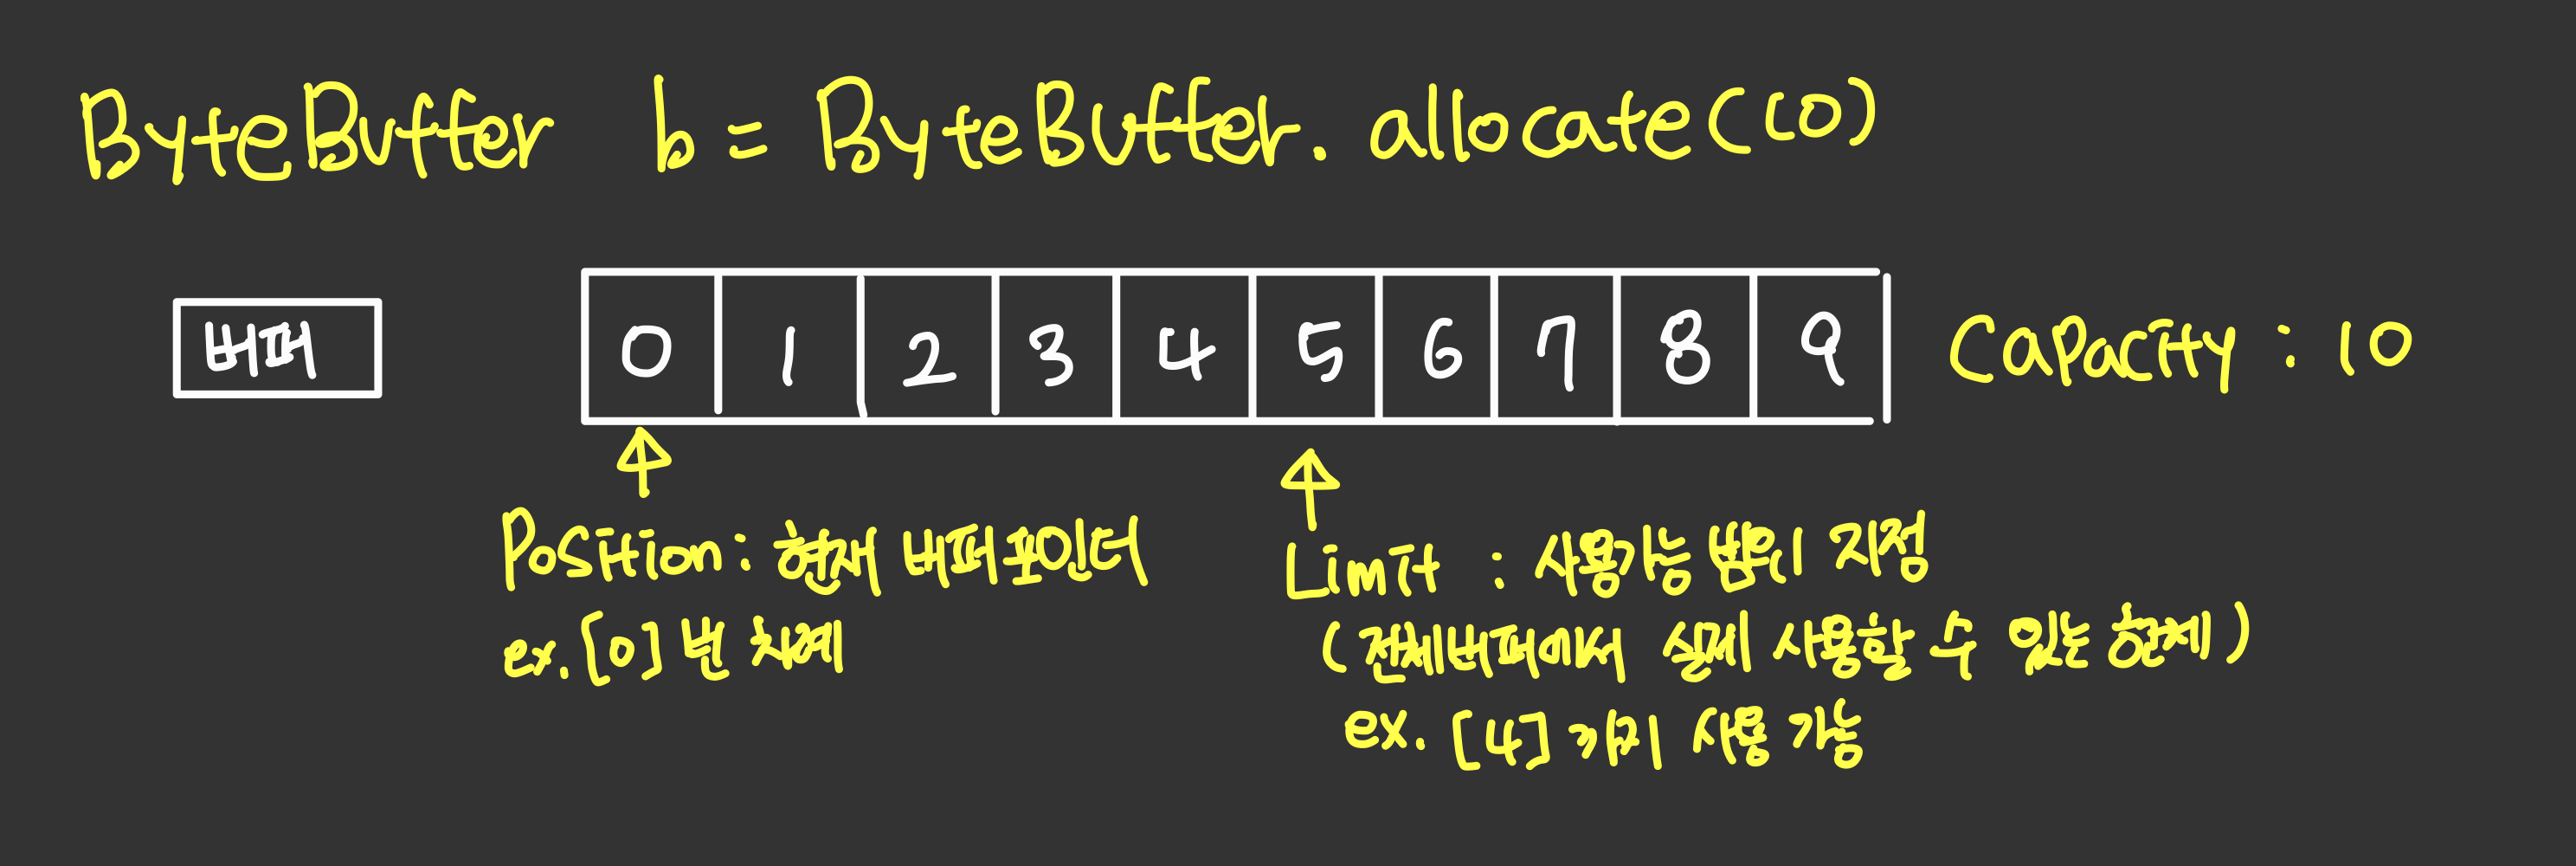 ByteBuffer b = ByteBuffer.allocate(10)
버퍼
0 1 2 3 4 5 6 7 8 9
Capacity : 10
Position : 현재 버퍼포인터
ex. [0] 번 차례
Limit : 사용가능 범위 지정
(전체버퍼에서 실제 사용할 수 있는 한계)
ex. [4] 까지 사용 가능